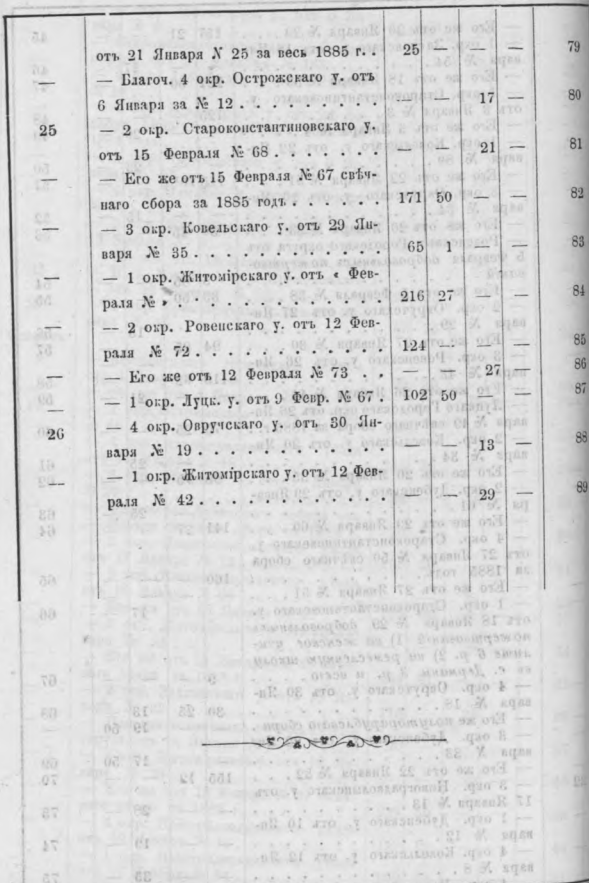 отъ 21 Января N 25 за весь 1885 г. . 25 — — — 79
— — Благоч. 4 окр. Острожскаго у. отъ
6 Января за № 12 . . . . . . . . . — — 17 — 80
25 — 2 окр. Староконстантиновскаго у.
отъ 15 Февраля № 68 . . . . . . . — — 21 — 81
— — Его же отъ 15 Февраля № 67 свѣч-
наго сбора за 1885 годъ . . . . . . 171 50 — — 82
— — 3 окр. Ковельскаго у. отъ 29 Ян-
варя № 35 . . . . . . . . . . . . 65 1 — — 83
— — 1 окр. Житомірскаго у. отъ « Фев-
раля № » . . . . . . . . . . . . . 216 27 — — 84
— — 2 окр. Ровенскаго у. отъ 12 Фев-
раля № 72 . . . . . . . . . . . . 124 — — — 85
— — Его же отъ 12 Февраля № 73 . . — — 27 — 86
— — 1 окр. Луцк. у. отъ 9 Февр. № 67 . 102 50 — — 87
26 — 4 окр. Овручскаго у. отъ 30 Ян-
варя № 19 . . . . . . . . . . . . — — 13 — 88
— — 1 окр. Житомірскаго у. отъ 12 Фев-
раля № 42 . . . . . . . . . . . . — — 29 — 89